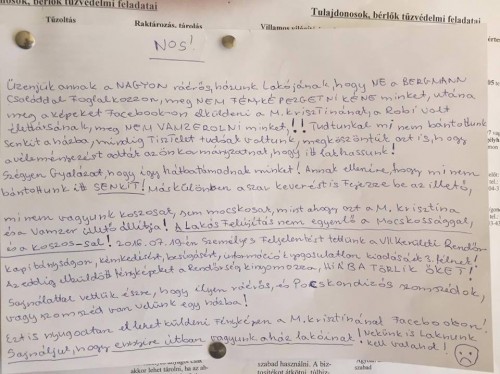 nosok, bérlők tűzvédelmi feladatai
Tulajdonosok, bérlők tűzvédelmi feladatai
Tűzoltás
Raktározás, tárolás
NOS!
Üzenjük annak a NAGYON ráérős, házunk Lakójának, hogy NE a BERGMANN
Családdal Foglalkozzon, meg NEM FÉNYKÉPEZGETNI KÉNE minket, utána
meg a képeket Facebook-on elküldeni a M. Krisztinának, a Robi volt
élettársának, meg NEM VAMZEROLNI minket,!! Tudtunkal mi nem bántottunk
senkit a házba, mindíg Tisztelet tudóak voltunk, megköszöntük azt is, hogy
a véleményezést adták az önkormányzatnak, hogy itt lakhassunk!
Szégyen Gyalázat, hogy így hátbatámadnak minket! Annak ellenére, hogy mi nem
bántottunk itt SENKIT! Máskülönben a szar keverést is Fejezze be az illető,
mi nem vagyunk koszosak, sem mocskosak, mint ahogy ezt a M. Krisztina
és a Vamzer illető állítja! A Lakás Felújítás nem egyenlő a Mocskossággal,
és a koszos-sal! 2016.07.19-én Személyes Feljelentést tettünk a VII Kerületi Rendőr-
kapitányságon, kémkedésért, besúgásért, információ jogosulatlan kiadásáért 3. félnek!
Az eddig elküldött fényképeket a Rendőrség kinyomozza, HIÁBA TÖRLIK ŐKET!
Sajnálattal vettük észre, hogy ilyen ráérős, és Pocskondiázós szomszédok,
vagy szomszéd van velünk egy házba!
Ezt is nyugodtan el lehet küldeni Fényképen a M. Krisztinának Facebookon!
Sajnáljuk, hogy ennyire útban vagyunk a ház lakóinak! Nekünk is laknunk
kell valahol!
akkor lehet tárolni, ha az ab-
szabad használni. A biz-
szabad